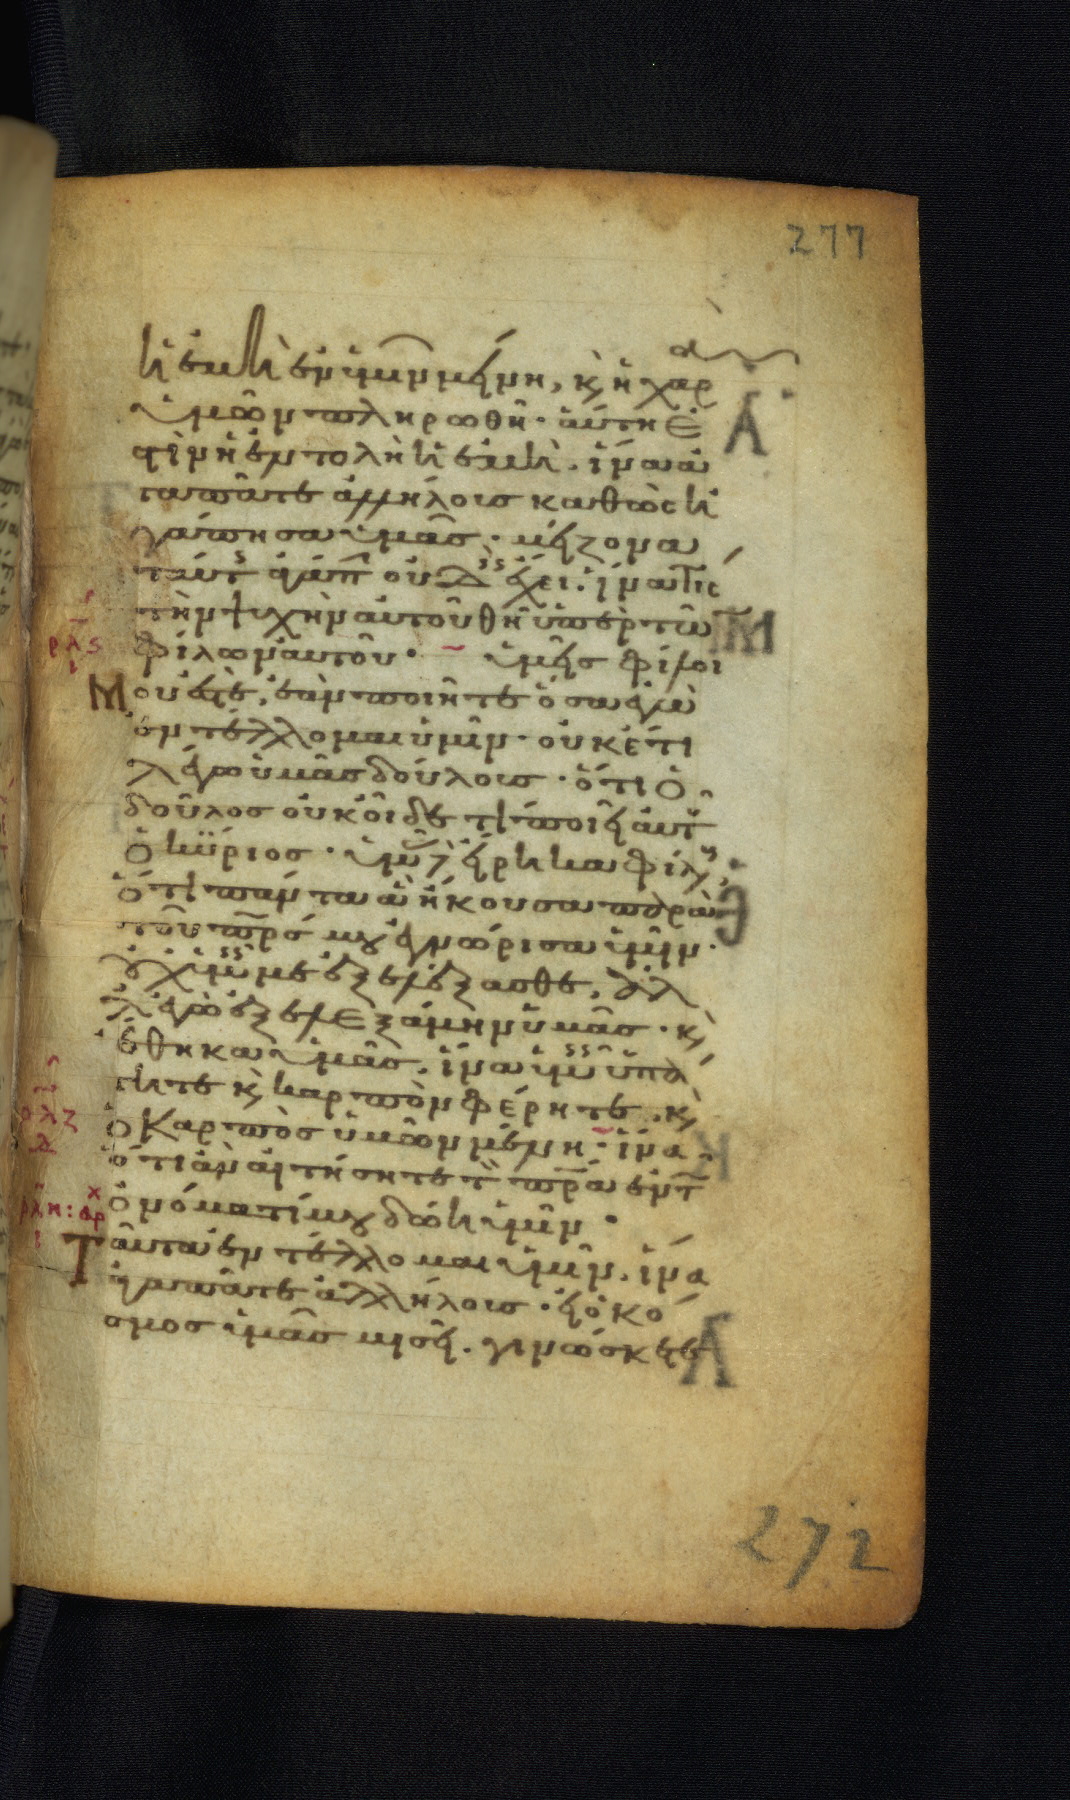 277
ἡ ἐμὴ ἐν ὑμῖν μένη, κ̀ ἡ χαρὰ
ὑμῶν πληρωθῆ· αὕτη ἐ
στὶν ἡ ἐντολὴ ἡ ἐμὴ. ἵνα ἀ
γαπᾶτε ἀλλήλους καθὼς ἠ
γάπησα ὑμᾶς· μείζονα
ταύτης ἀγάπην οὐδεὶς ἔχει. ἵνα τὶς
τὴν ψυχὴν αὐτοῦ θῆ ὑπὲρ τῶν
φίλων αὐτοῦ· ὑμεῖς φίλοι
μου ἐστὲ, ἐὰν ποιῆτε ὅσα ἐγὼ
ἐντέλλομαι ὑμῖν· οὐκέτι
λέγω ὑμᾶς δούλους· ὅτι ὁ
δοῦλος οὐκ οἶδε τί ποιεῖ αὐτοῦ
ὁ κύριος· ὑμᾶς δὲ εἴρηκα φίλους,
ὅτι πάντα ἃ ἤκουσα παρὰ
τοῦ πρς μου ἐγνώρισα ὑμῖν·
οὐχ ὑμεῖς με ἐξελέξασθε, ἀλλ
ἐγὼ ἐξελεξάμην ὑμᾶς· κ̀
ἔθηκα ὑμᾶς, ἵνα ὑμεῖς ὑπά
γητε κ̀ καρπὸν φέρητε. κ̀
ὁ καρπὸς ὑμῶν μένη· ἵνα
ὅτι ἂν αἰτήσητε τὸν πρα ἐν τῶ
ὀνόματί μου δώη ὑμῖν·
Ταῦτα ἐντέλλομαι ὑμῖν. ἵνα
ἀγαπᾶτε ἀλλήλους· εἰ ὁ κό
σμος ὑμᾶς μισεῖ. γινώσκετε
ρλς
ι
ρλζ
δ
ρλη: αρ
ι
272